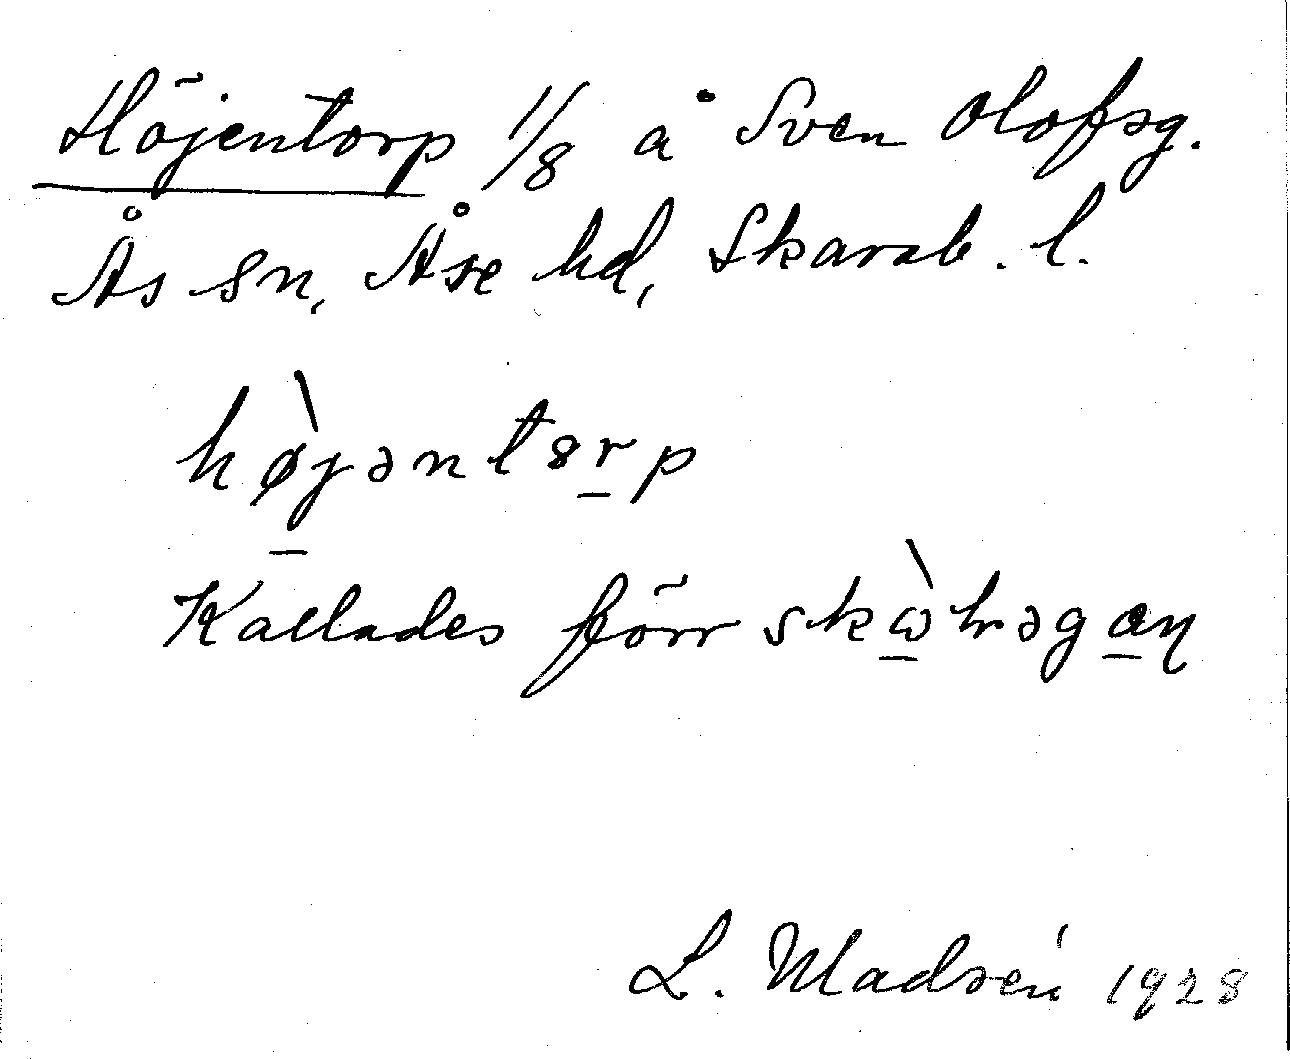 Höjentorp 1/8 å Sven Olofsg.
Ås sn, Åse hd, Skarab. l.
hø̀jəntȣrp
Kallades förr skὼhəgaɳ
L. Madsén 1928